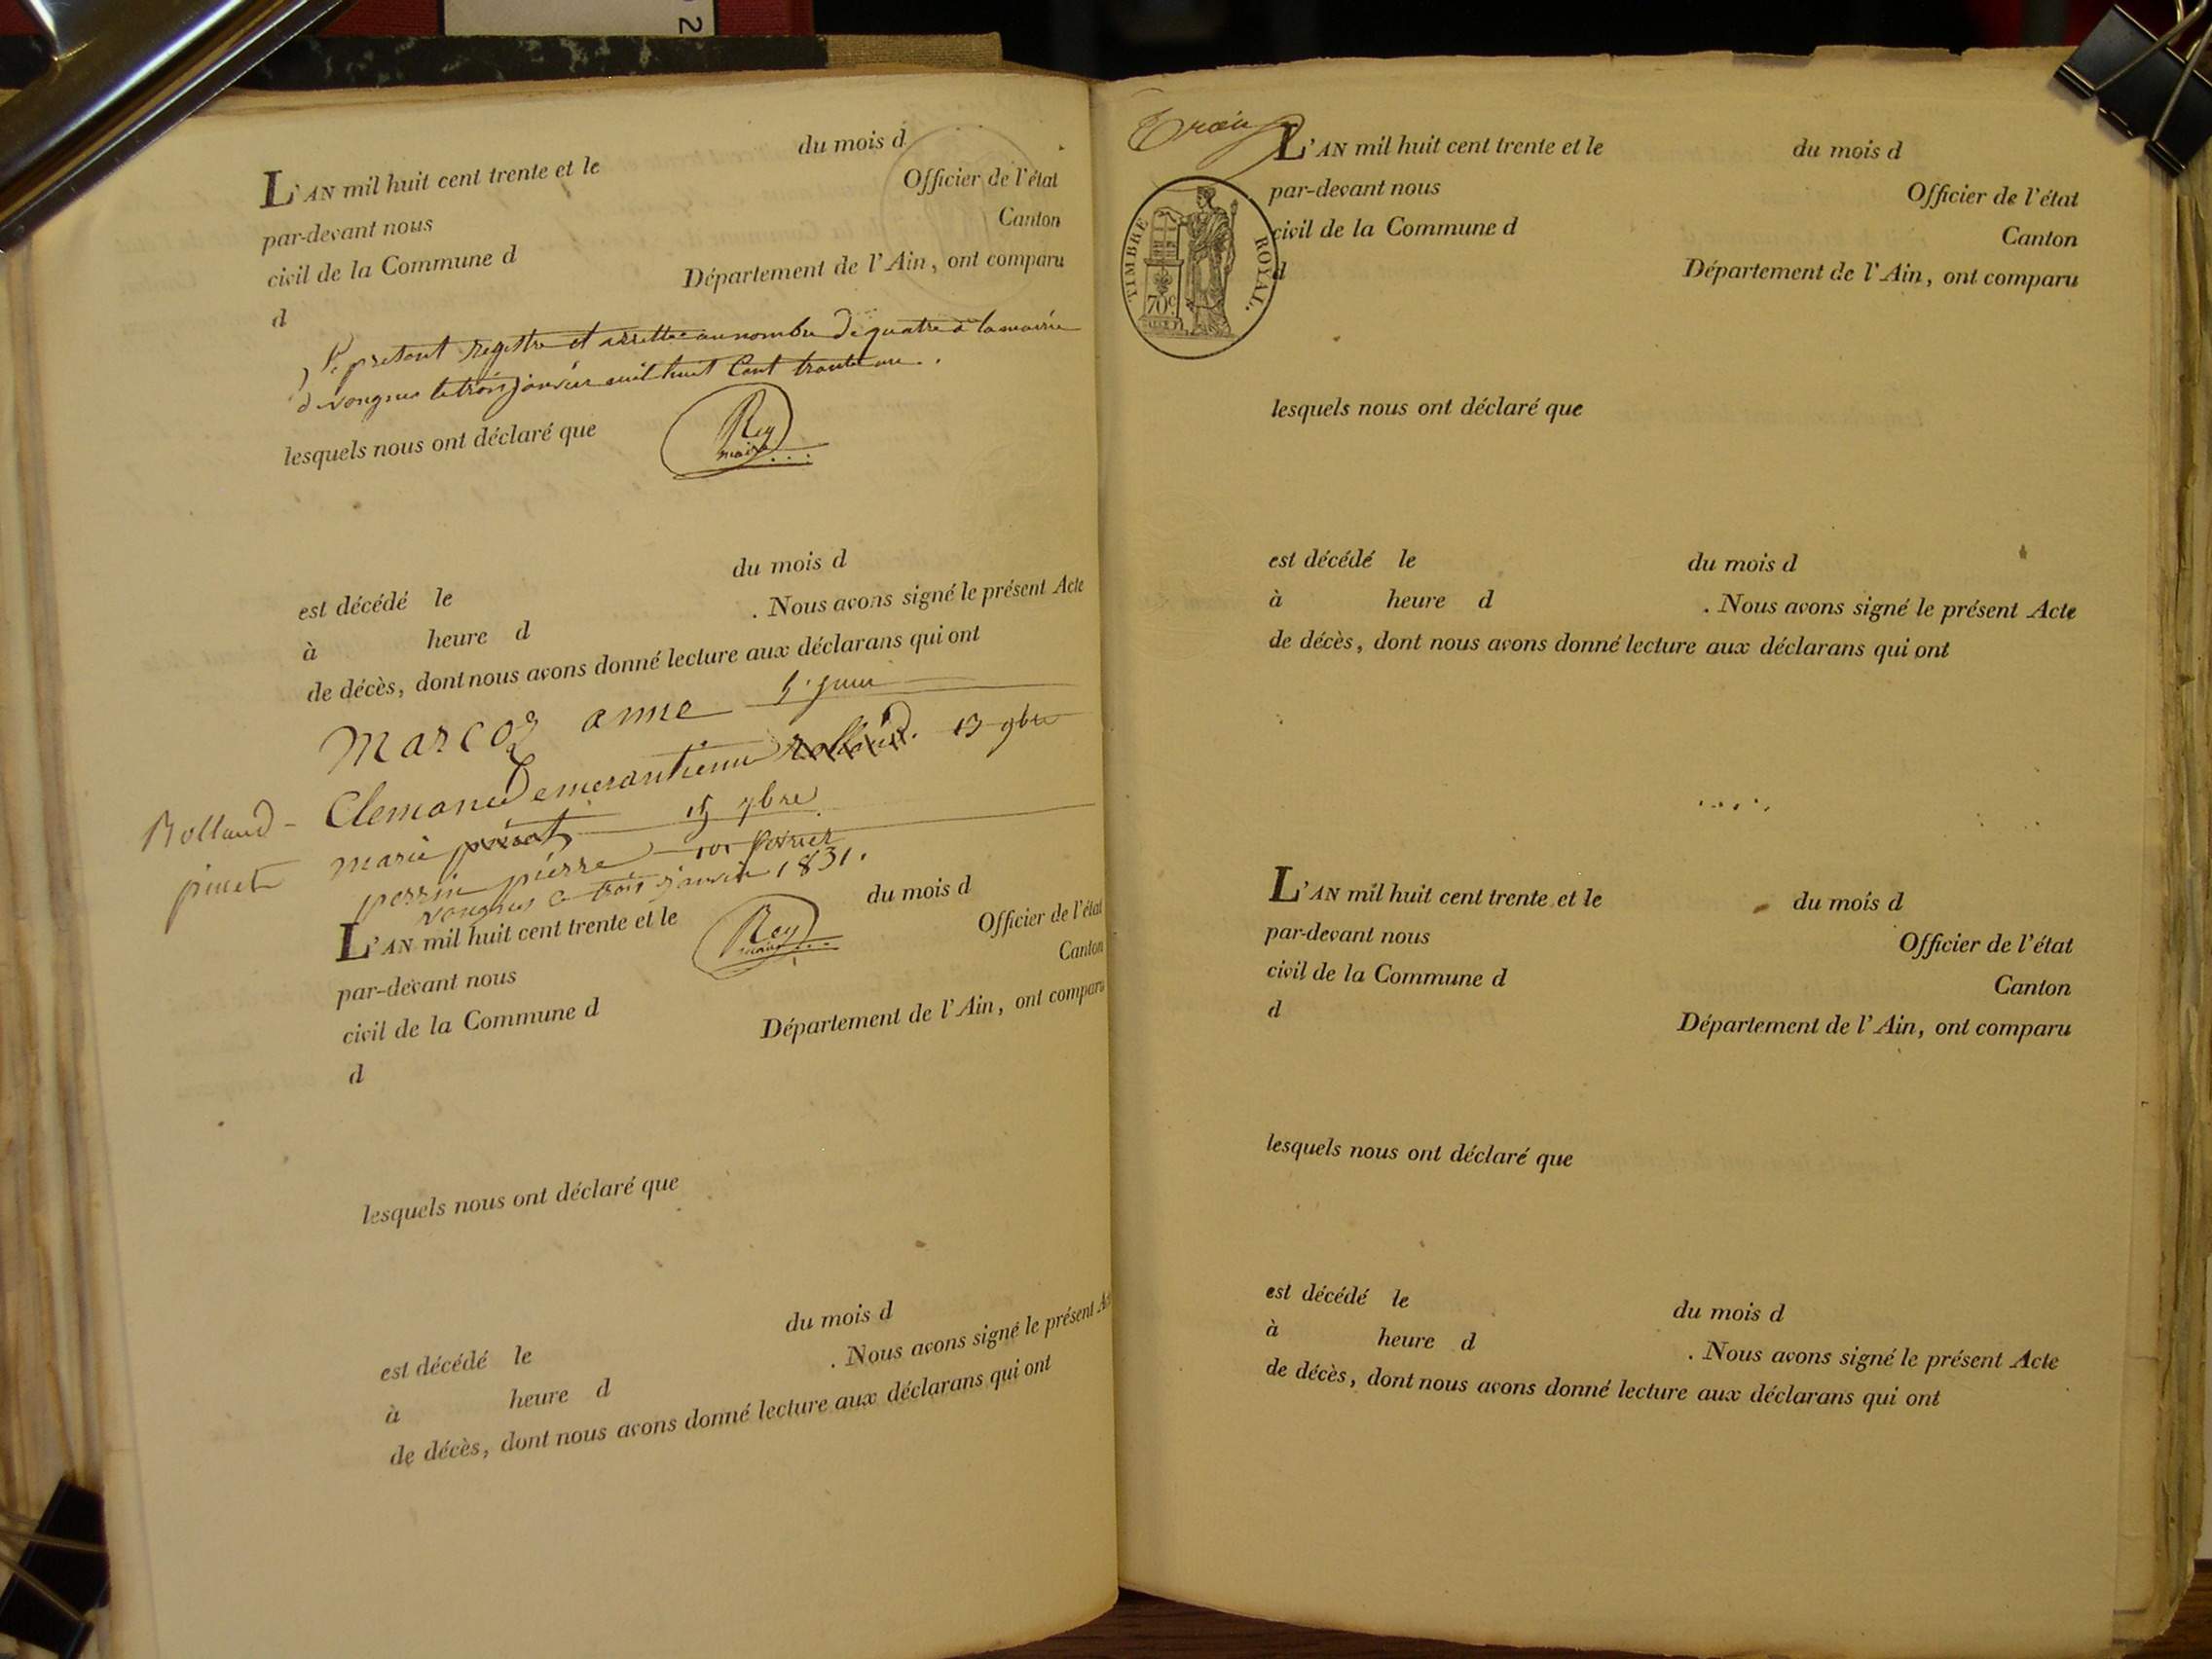 2
du mois d
L'AN mil huit cent trente et le
Officier de l'état
par-devant nous
Canton
civil de la Commune d
Département de l'Ain, ont comparu
d
le present registre et arretté au nombre de quatre à la mairie
de vongnes le trois janvier mil huit Cent trante un.
lesquels nous ont déclaré que
Rey
maire
du mois d
est décédé le
. Nous avons signé le présent Acte
à heure d
de décès, dont nous avons donné lecture aux déclarans qui ont
Marcoz anne 5 juin
Rolland - Clemance emerantienne 13 9bre
pinet marie 15 9bre
perrin pierre 10r fevrier
vongnes ce trois janvier 1831.
L'AN mil huit cent trente et le
du mois d
Rey
maire
Officier de l'état
par-devant nous
Canton
civil de la Commune d
Département de l'Ain, ont comparu
d
lesquels nous ont déclaré que
du mois d
est décédé le
. Nous avons signé le présent A
à heure d
de décès, dont nous avons donné lecture aux déclarans qui ont
Trois
L'AN mil huit cent trente et le du mois d
par-devant nous Officier de l'état
civil de la Commune d Canton
d Département de l'Ain, ont comparu
TIMBRE ROYAL.
70c
lesquels nous ont déclaré que
est décédé le du mois d
à heure d . Nous avons signé le présent Acte
de décès, dont nous avons donné lecture aux déclarans qui ont
L'AN mil huit cent trente et le du mois d
par-devant nous Officier de l'état
civil de la Commune d Canton
d Département de l'Ain, ont comparu
lesquels nous ont déclaré que
est décédé le du mois d
à heure d . Nous avons signé le présent Acte
de décès, dont nous avons donné lecture aux déclarans qui ont